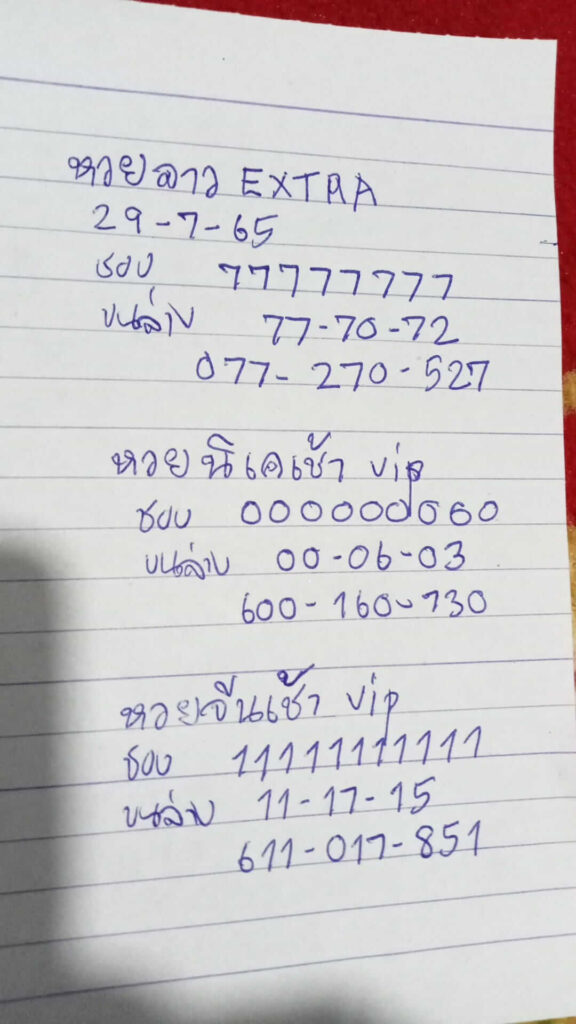 หวยลาว EXTRA
29-7-65
ชอง 77777777
บนล่าง 77-70-72
077-270-527
หวยนิเคเช้า vip
ชอง 000000000
บนล่าง 00-06-03
600-160-730
หวยจีนเช้า vip
ชอง 11111111111
บนล่าง 11-17-15
611-017-851